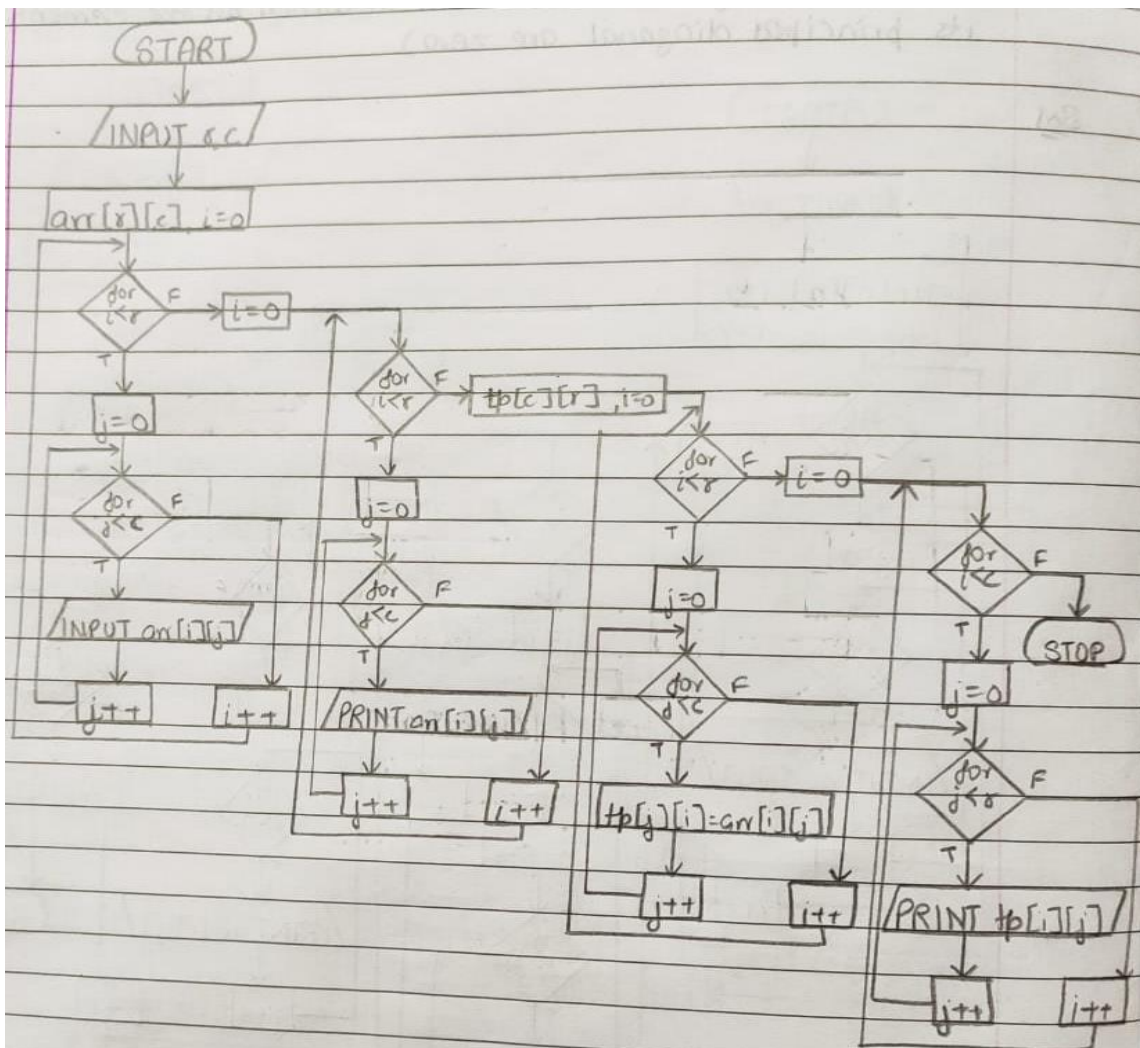 START
INPUT r, c
arr[r][c], i=0
for
i<r
F
T
j=0
for
j<c
F
T
INPUT arr[i][j]
j++
i++
i=0
for
i<r
F
T
j=0
for
j<c
F
T
PRINT arr[i][j]
j++
i++
tp[c][r], i=0
for
i<r
F
T
j=0
for
j<c
F
T
tp[j][i]=arr[i][j]
j++
i++
i=0
for
i<c
F
T
STOP
j=0
for
j<r
F
T
PRINT tp[i][j]
j++
i++